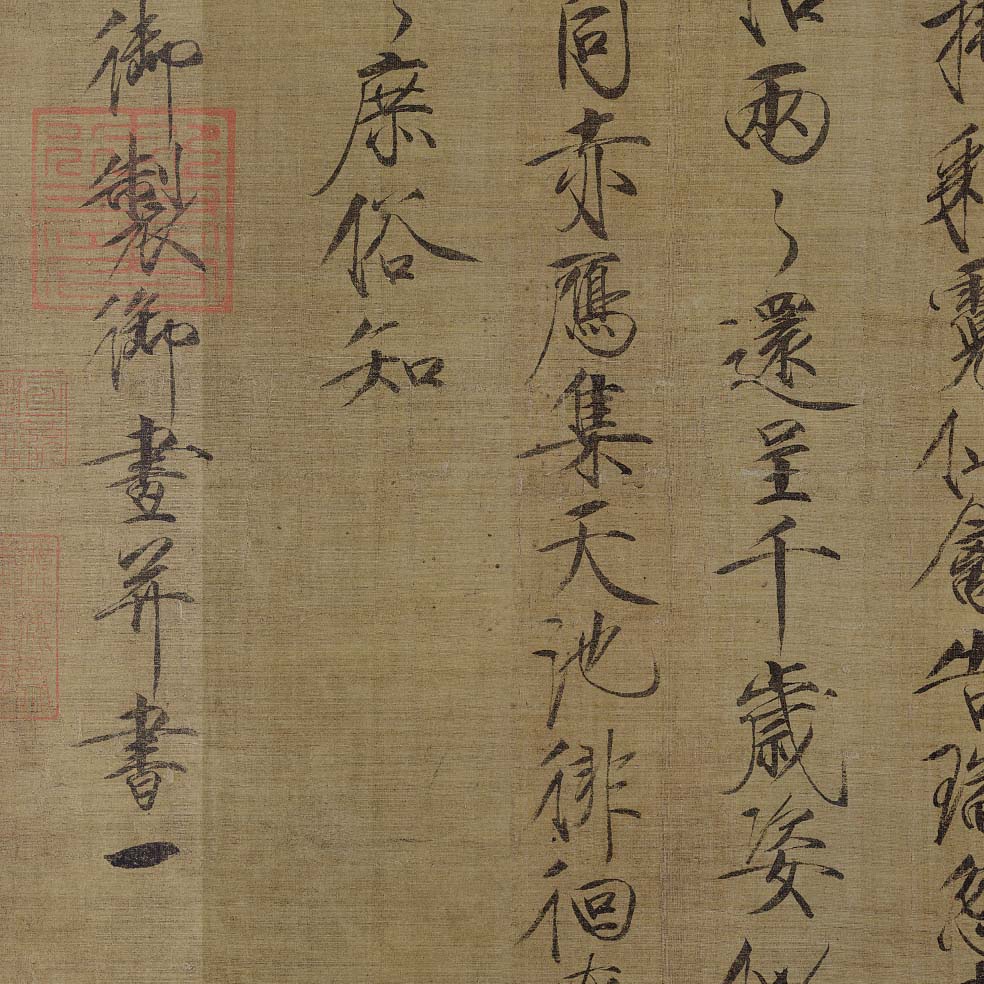 拂彩霓仙禽告瑞忽
侶兩〻還呈千歲姿似
同赤鴈集天池徘徊
〻庶俗知
御製御畫并書一